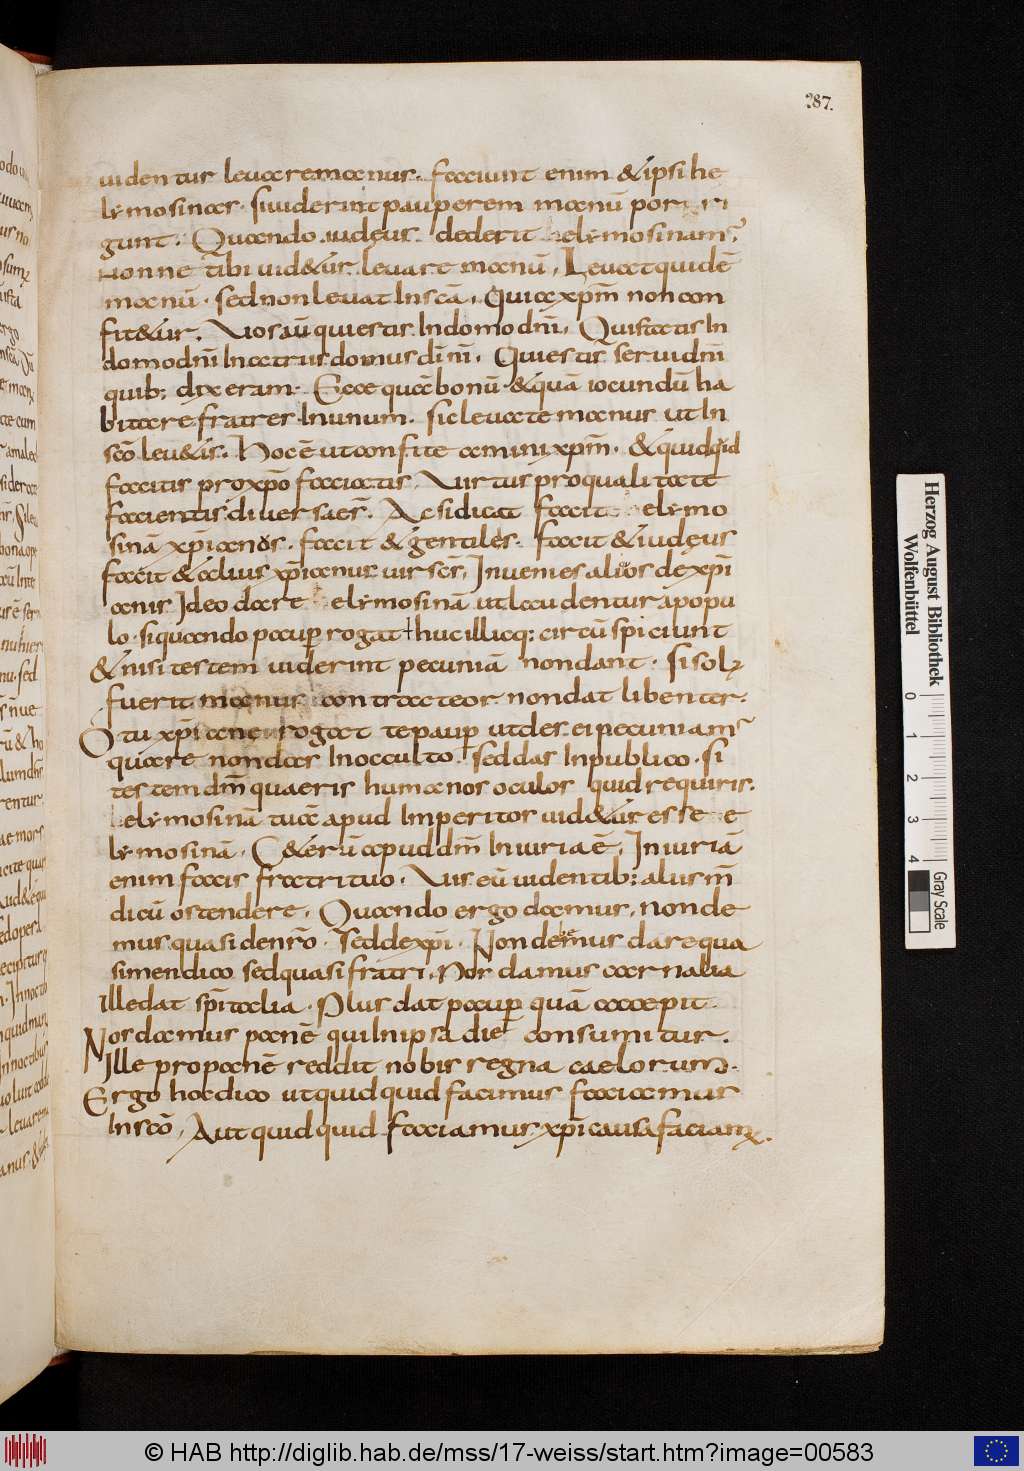 287.
uidentur leuare manus. faciunt enim & ipsi he
lymosinas. si uiderint pauperem manū porri
gunt. Quando iudęus dederit elymosinam
Nonne tibi uid&ur leuare manū. Leuat quidē
manū. sed non leuat In sc̄a. Quia xp̄m non con
fit&ur. Uos aū qui estis In domo dn̄i. Qui statis In
domo dn̄i In atriis domus dī nī. Qui estis serui dn̄i
quib; dixeram. Ecce quā bonū & quā iocundū ha
bitare fratres In unum. sic leuate manus ut In
sc̄o leu&is. Hoc ē ut confiteamini xp̄m. & quidquid
facitis pro xp̄o faciatis. Uirtus pro qualitate
facientis diuersa ēs. Ac si dicat facit elymo
sinā xpianos. facit & gentiles. facit & iudęus
facit & alius xp̄ianus uir sc̄s. Inuenies alios de xp̄i
anis Ideo dare elymosinā ut laudentur a popu
lo. si quando paup̱ rogat huc illucq; circūspiciunt
& nisi testem uiderint pecuniā non dant. si solꝝ
fuerit manus contractior non dat libenter.
O tu xp̄iane rogat te paup̱ ut des ei pecuniam
quare non das In occulto. sed das In publico. si
testem dn̄m quaeris humanos oculos quid requiris.
elymosinā tuā apud Imperitos uid&ur esse e
lymosinā. C&erū apud dn̄m Iniuria ē. Iniuriā
enim facis fratri tuo. Uis eū uidentib; aliis m̄
dicū ostendere. Quando ergo damus, non de
mus quasi de nr̄o. sed de xp̄i. Non demus dare qua
si mendico sed quasi fratri. Nos damus carnalia
Ille dat sp̄italia. Plus dat paup̱ quā accepit.
Nos damus panē qui In ipsa die consumitur.
Ille pro panē reddit nobis regna caelorum.
Ergo hoc dico ut quidquid facimus faciamus
In sc̄o. Aut quidquid faciamus xp̄i causa faciamꝰ.
Herzog August Bibliothek
Wolfenbüttel
0 1 2 3 4
Gray Scale
© HAB http://diglib.hab.de/mss/17-weiss/start.htm?image=00583